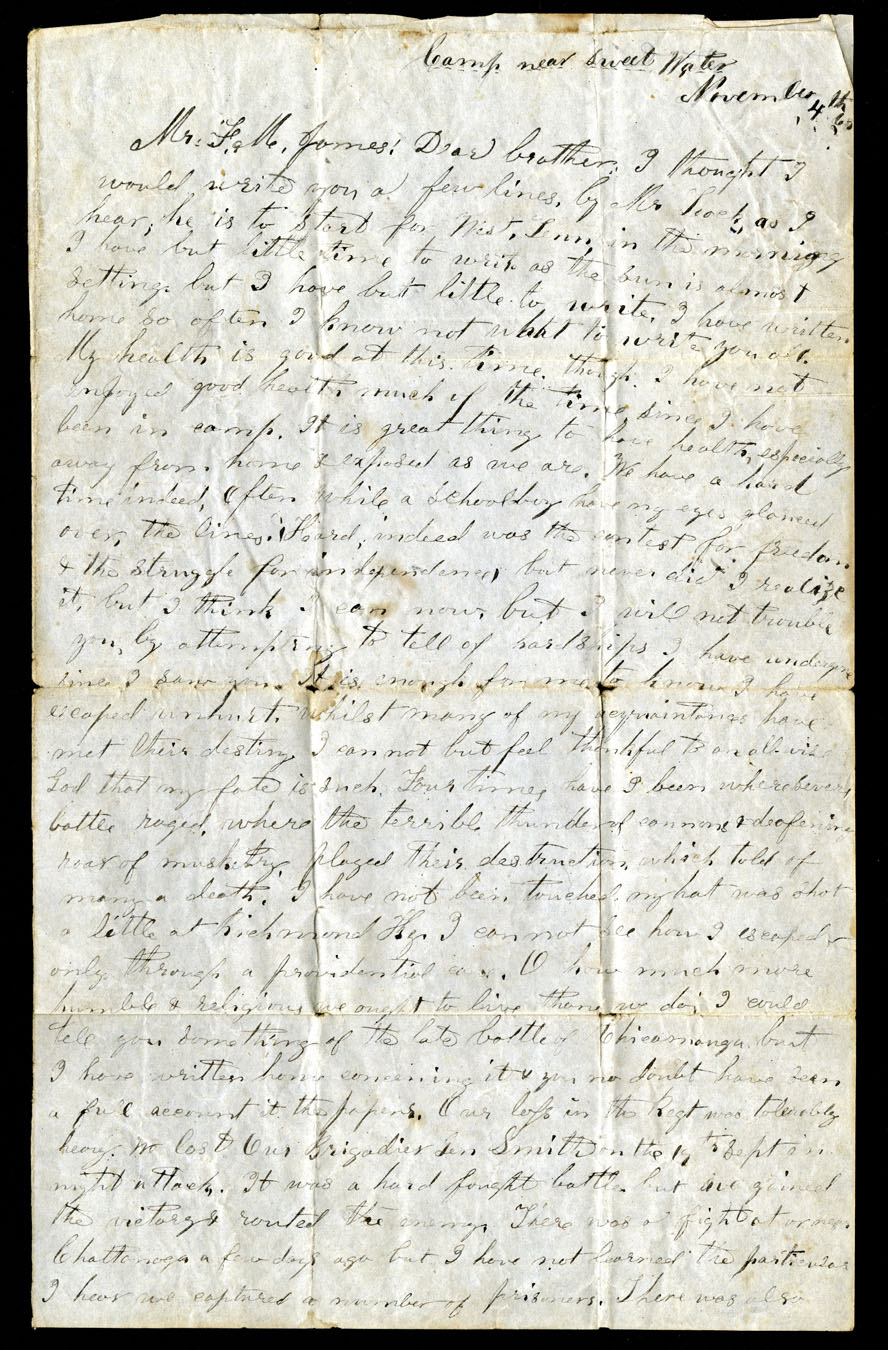 Camp near Sweet Water
November 4th
Mr. F. M. James! Dear brother, I thought I
would write you a few lines, by Mr as I
hear, he is to start for West, Tenn, in the morning
I have but little time to write as the sun is almost
setting. but I have but little to write, I have written
home so often I know not what to write you all.
My health is good at this time, though I have not
enjoyed good health much of the time since I have
been in camp. It is great thing to have health, especially
away from home & exposed as we are. We have a hard
time indeed, Often while a Schoolboy have my eyes glanced
over, the lines. "Hard, indeed was the contest for freedom
& the struggle for independence, but never did I realize
it, but I think I can now, but I will not trouble
you, by attempting to tell of hardships I have undergone
since I saw you. It is enough for me to know I have
escaped unhurt. whilst many of my acquaintances have
met their destiny I cannot but feel thankful to an all-wise
God that my fate is such, Four times have I been where severe
battle raged, where the terrible thunder of cannons & deafening
roar of musketry, played their destruction, which told of
many a death. I have not been touched, my hat was shot
a little at Richmond Ky. I cannot see how I escaped
only through a providential O how much more
humble & religious we ought to live than we do; I could
tell you something of the late battle of Chicamauga but
I have written home concerning it & you no doubt have seen
a full account it the papers. Our loss in the Regt was tolerably
heavy. We lost Our Brigadier Gen Smith on the 19th Sept in
night attack. It was a hard fought battle. but we gained
the victory & routed the enemy. There was a fight at or near
Chattanoga a few days ago but I have not learned the particulars
I hear we captured a number of prisoners. There was also